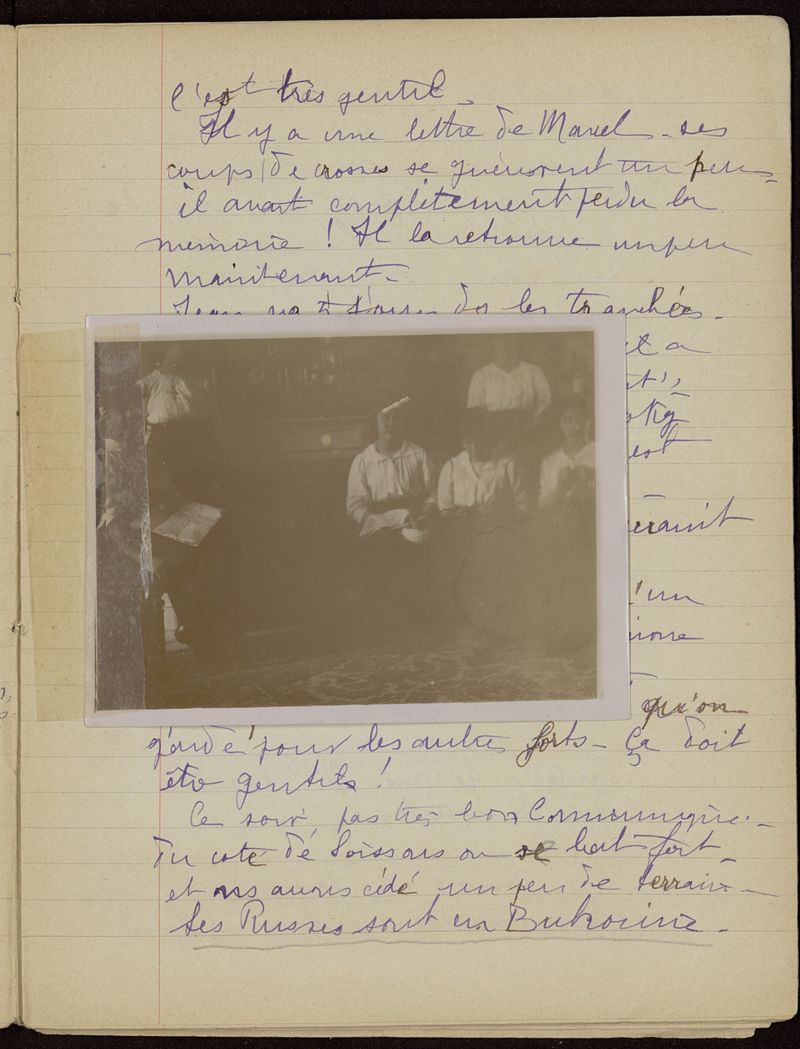 c'est très gentil.
Il y a une lettre de Marcel - ses
coups de crosses se guérissent un peu -
il avait complètement perdu la
mémoire ! Il la retrouve un peu
maintenant -
Jean va tjours ds les tranchées -
et a
est
'un
qu'on
garde pour les autres forts - ça doit
être gentils !
Ce soir pas très bon Communiqué -
du coté de Soissons on se bat fort -
et ns avons cédé un peu de terrain -
Les Russes sont en Bukovine -